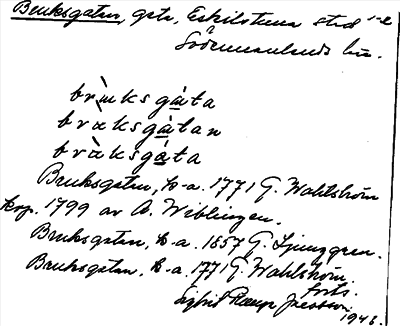 Bruksgatan, gata, Eskilstuna stad
Södermanlands län.
brùksgáta
brùksgátan
bràksgáta
Bruksgatan, k-a. 1771 G. Wahlström
kop. 1799 av A. Wiblingen.
Bruksgatan, k-a. 1857 G. Ljunggren.
Bruksgatan, k-a. 1771 G. Wahlström
forts.
Sigrid 1946.